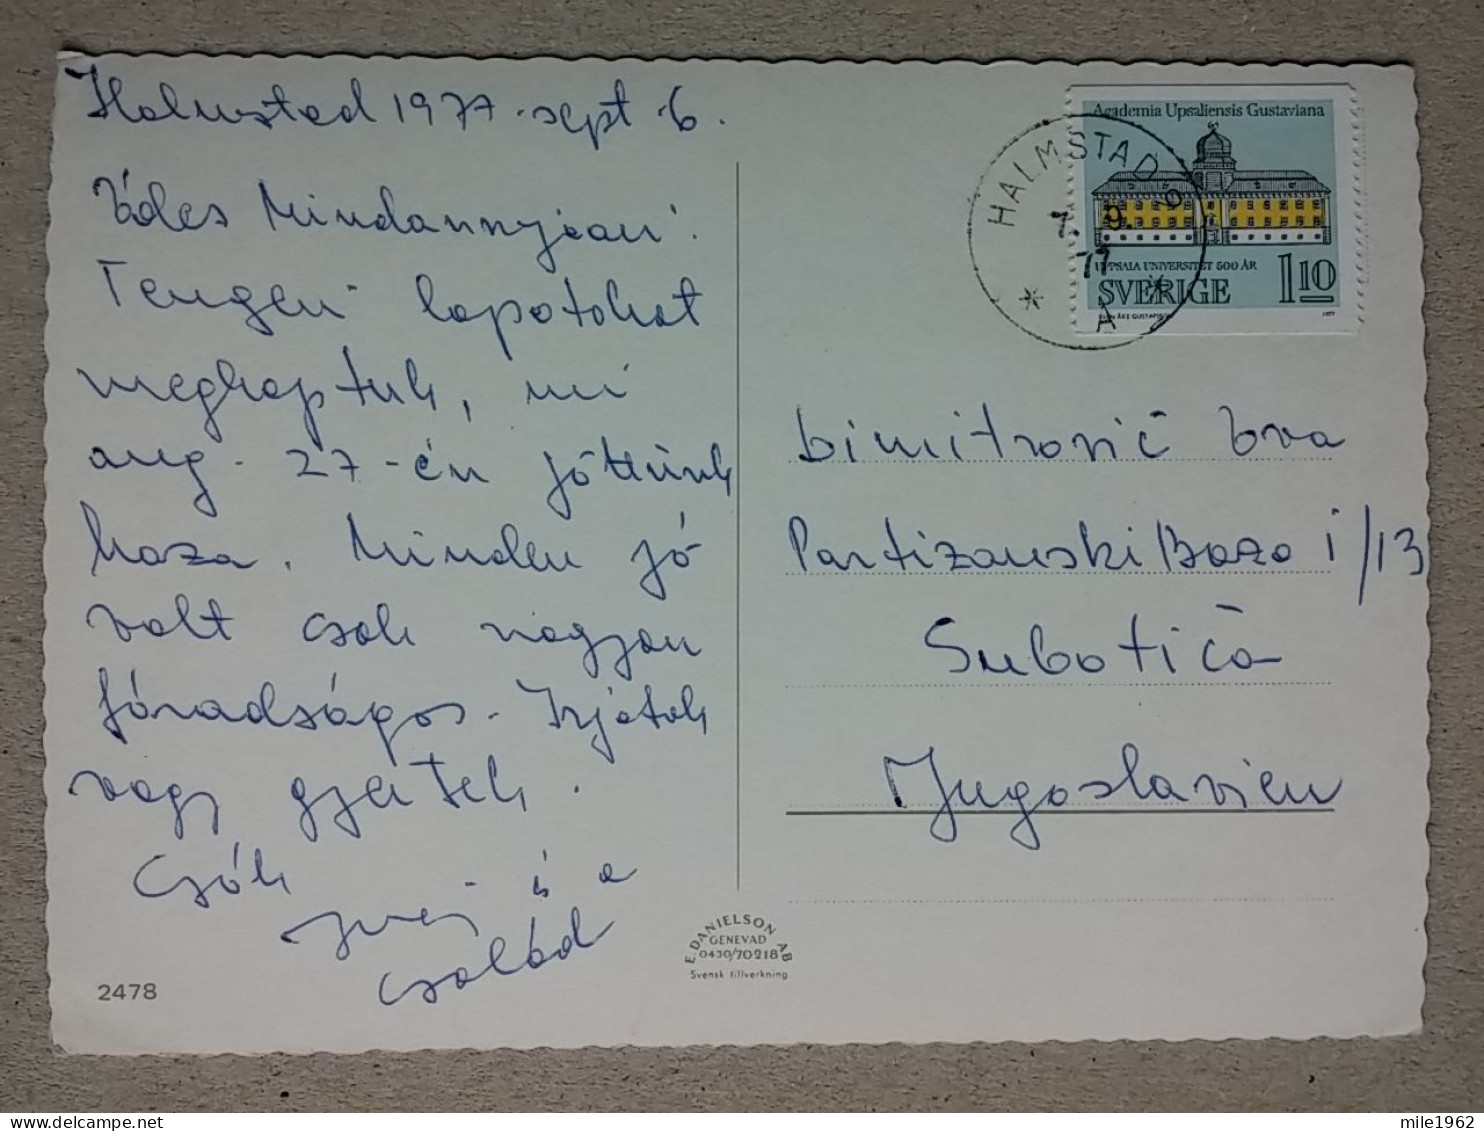 Halmstad 1977. sept. 6.
Édes Mindannyian!
Tengeri lapotokat
megkaptuk, mi
aug. 27-én jöttünk
haza. Minden jó
volt csak nagyon
fáradságos. Irjatok
vagy gyertek.
Csók
és a
család
2478
E. DANIELSON AB
GENEVAD
0430/70218
Svensk tillverkning
Academia Upsaliensis Gustaviana
UPPSALA UNIVERSITET 500 ÅR
SVERIGE 1.10
1977
HALMSTAD 6
7. 9.
77
* A *
Dimitrović Eva
Partizanski Baza I/13
Subotica
Jugoslavien
mile1962